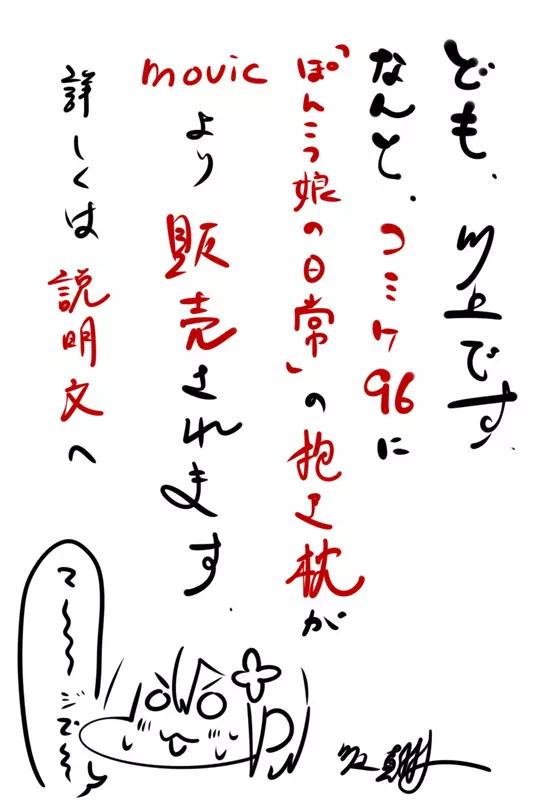 ども、川上です。
なんと、コミケ96に
「ぽんこつ娘の日常」の抱き枕が
movicより販売されます。
詳しくは説明文へ
て〜〜〜ジで〜〜
川上真樹